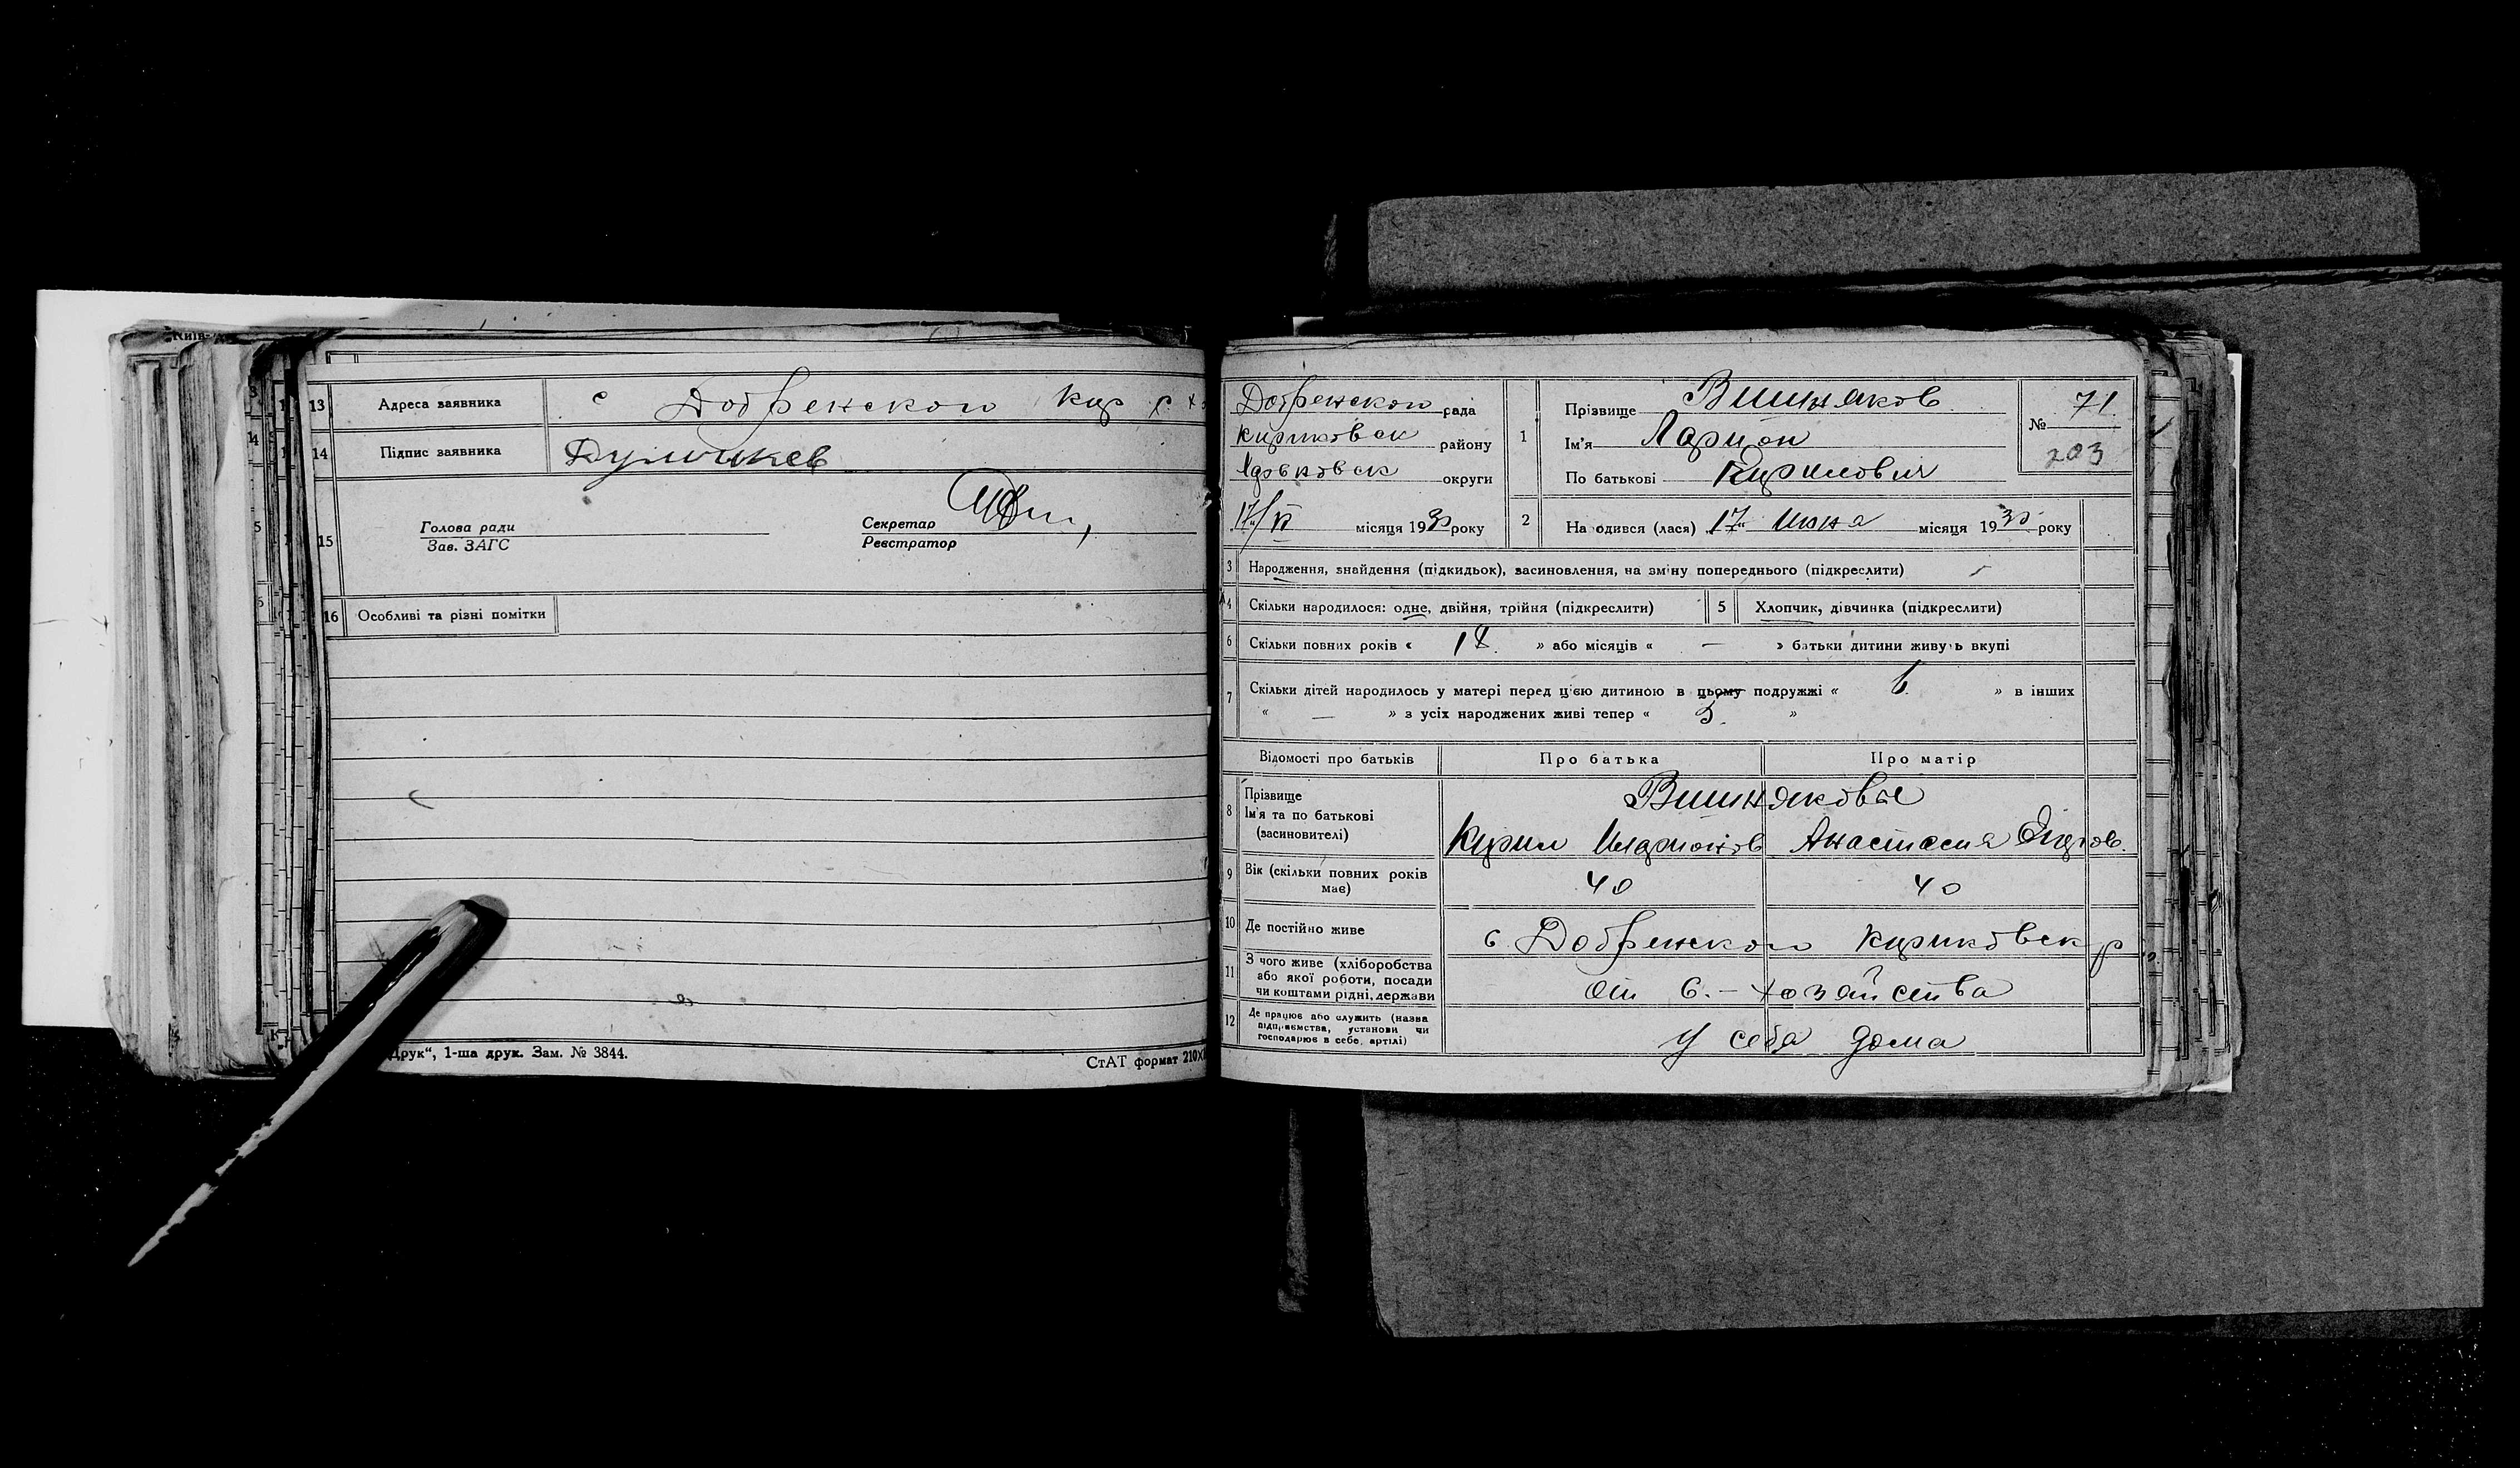 Київ-
13 Адреса заявника с Добренском Кир р х
14 Підпис заявника
15 Голова ради Секретар
Зав. ЗАГС Реєстратор
16 Особливі та різні помітки
Друк“, 1-ша друк. Зам. № 3844.
СтАТ формат 210X
Добренском рада
Кириковск району
Харьковск округи
17/VI місяця 1930 року
1 Прізвище Вишняков
Ім'я Ларион
По батькові Кирилович
№ 71
203
2 На одився (лася) 17 Июня місяця 1930 року
3 Народження, знайдення (підкидьок), васиновлення, на зміну попереднього (підкреслити)
4 Скільки народилося: одне, двійня, трійня (підкреслити) 5 Хлопчик, дівчинка (підкреслити)
6 Скільки повних років « 18 » або місяців « — » батьки дитини живуть вкупі
7 Скільки дітей народилось у матері перед цією дитиною в цьому подружжі « 6 » в інших
« — » з усіх народжених живі тепер « 3. »
Відомості про батьків Про батька Про матір
8 Прізвище Вишняковы
Ім'я та по батькові
(засиновителі) Кирил Иларионов Анастасия
9 Вік (скільки повних років має) 40 40
10 Де постійно живе с Добренском Кириковск р
11 З чого живе (хліборобства
або якої роботи, посади
чи коштами рідні, держави от с.-хозяйства
12 Де працює або служить (назва
підприємства, установи чи
господарює в себе, артілі) у себя дома